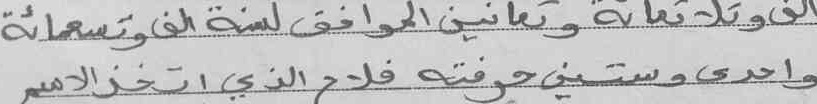 الف وثلاثمائة وثمانين الموافق لسنة الف وتسعمائة
واحدى وستين حرفته فلاح الذي اتخذ الاسم